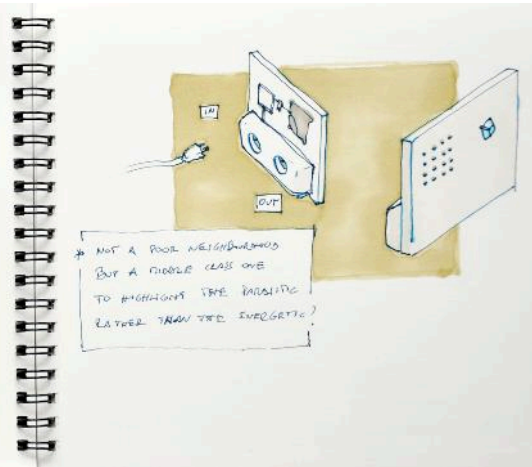 IN
OUT
* NOT A POOR NEIGHBOURHOOD
BUT A MIDDLE CLASS ONE
TO HIGHLIGHT THE PARASITIC
RATHER THAN THE ENERGETIC)